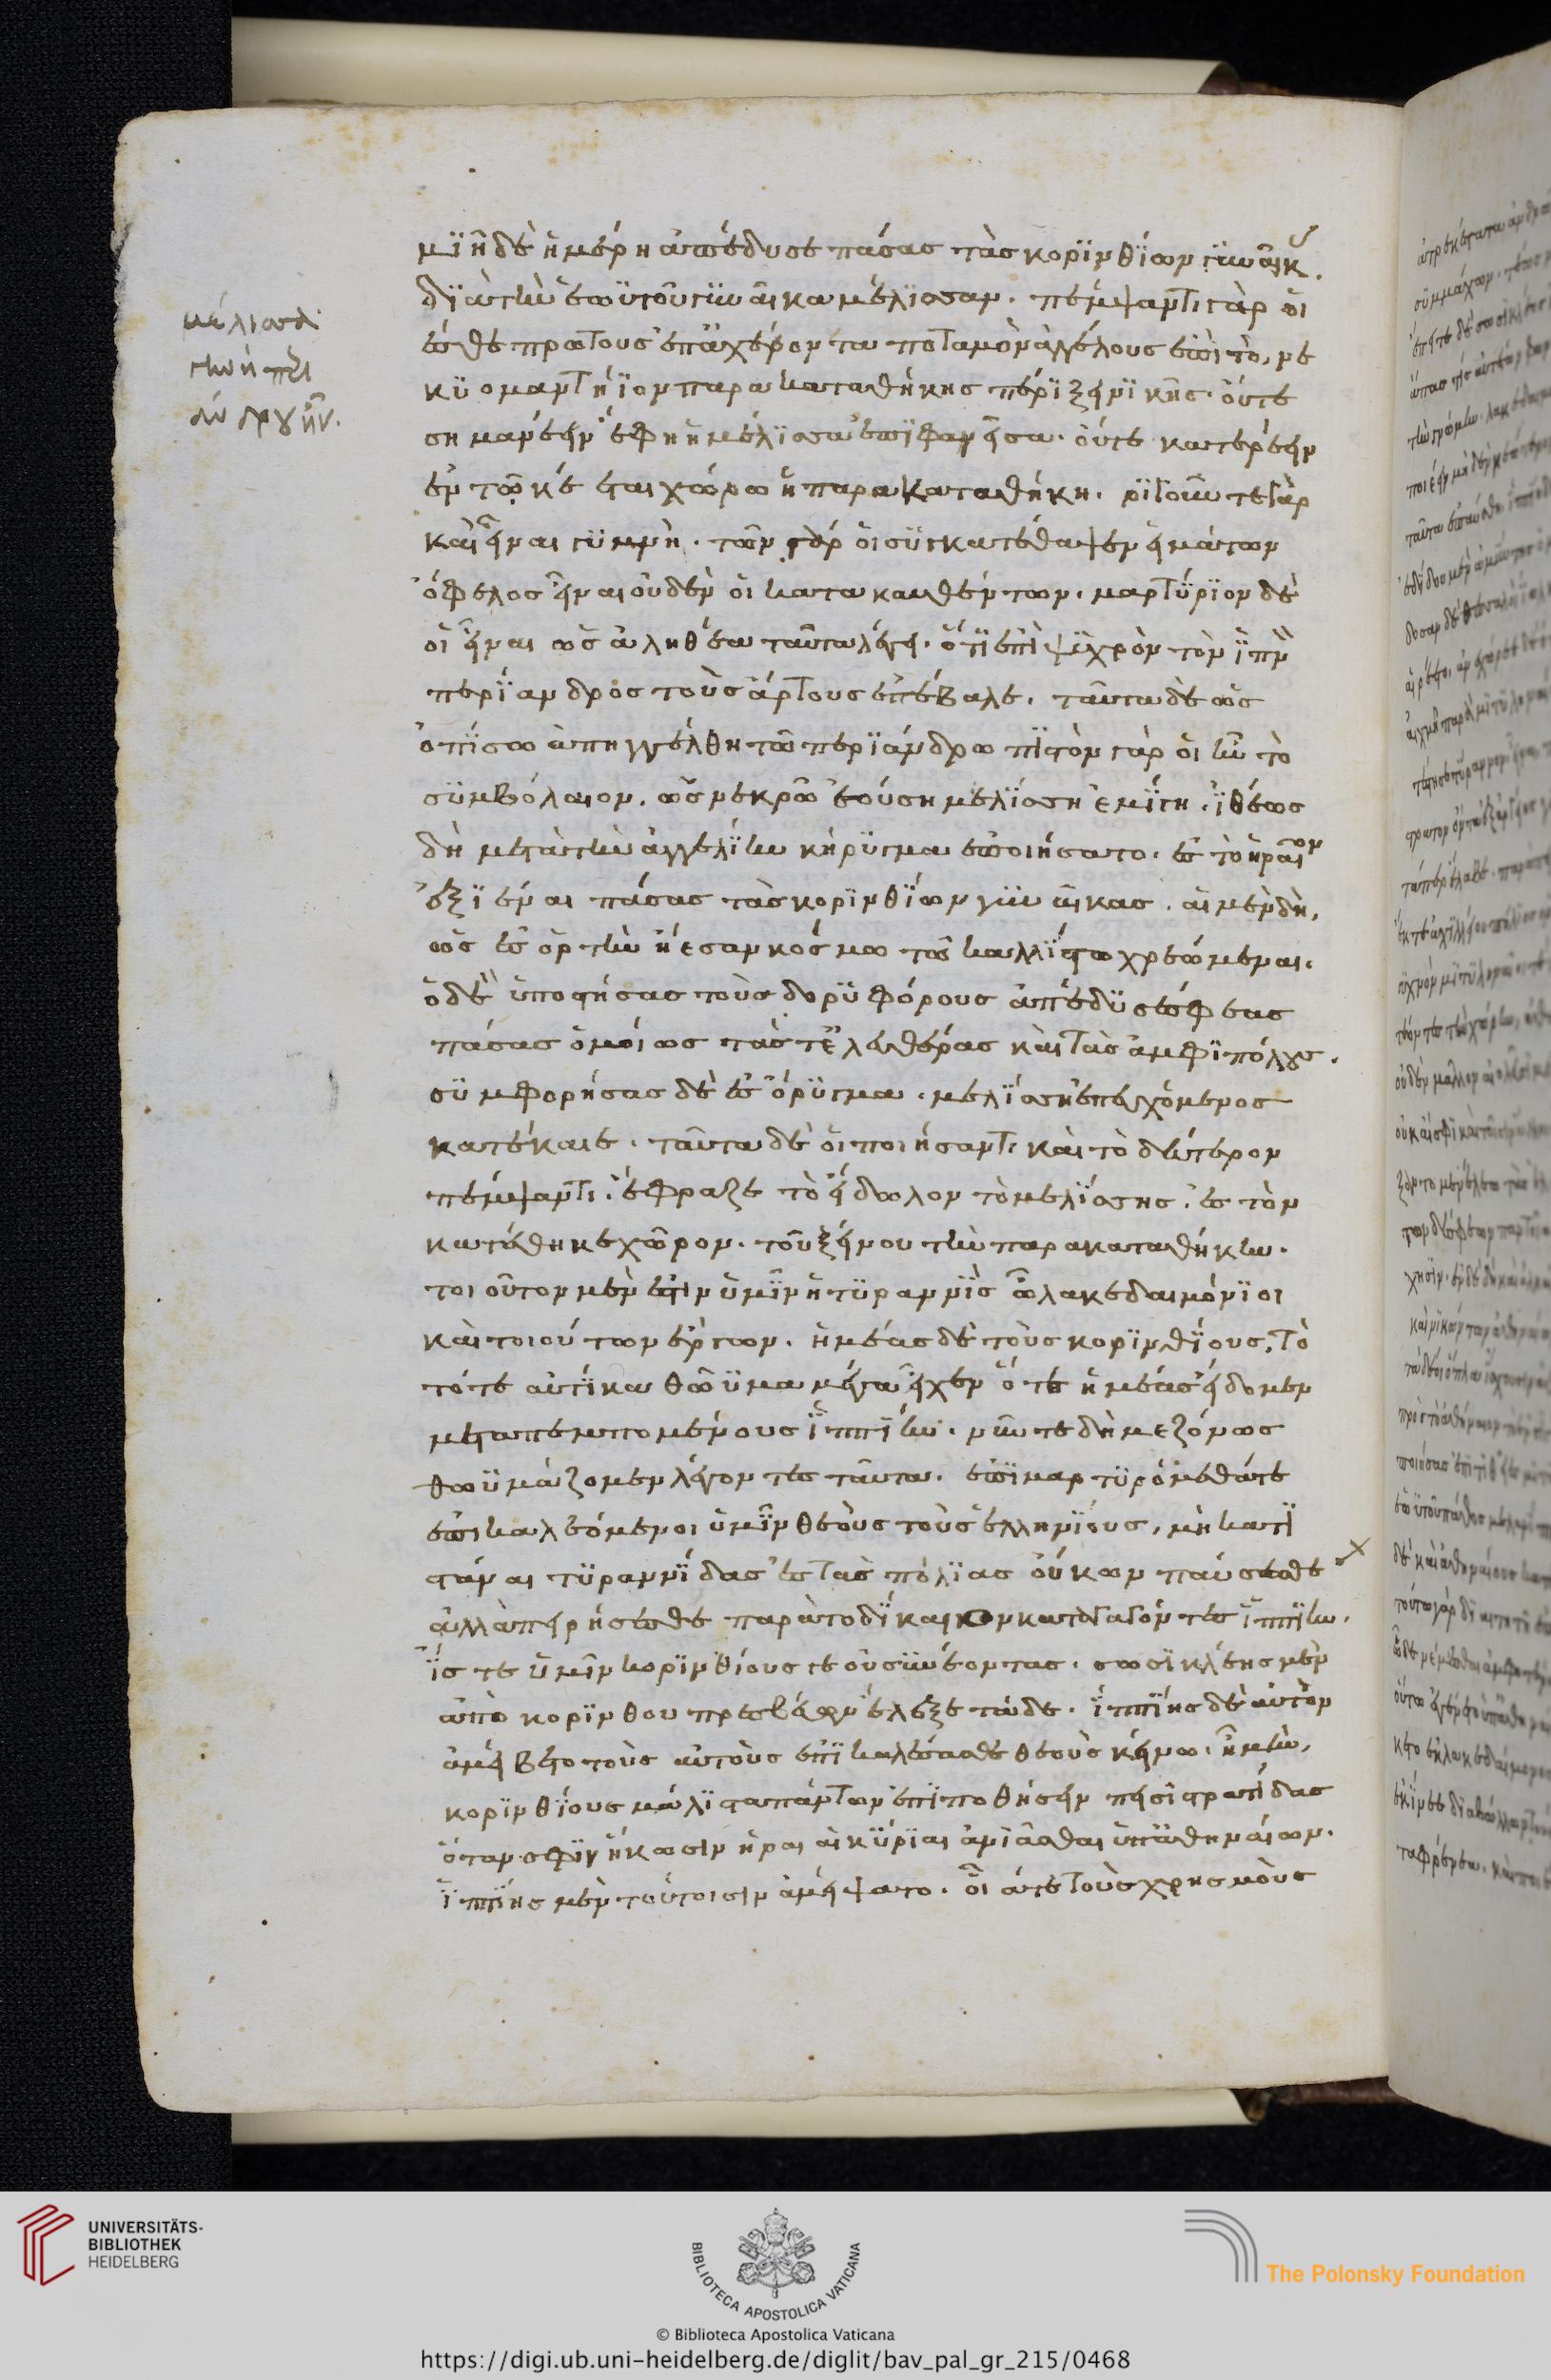 μϊῆ δὲ ἡμέρη ἀπέδυσε πάσας τὰς κορϊνθίων γϋναῖκ.
δϊὰ τὴν ἑωϋτοῦ γϋναῖκα μέλϊσσαν. πέμψαντι γάρ οἱ
ἐς θεσπρωτοὺς ἐπ ἀχέροντα ποταμὸν ἀγγέλους ἐπὶ τὸ, νε
κϋομαντήϊον παρακαταθήκης πέρϊ ξεινϊκῆς. οὔτε
σημανέειν ἔφη ἡ μέλϊσσα ἐπϊφανεῖσα. οὔτε κατερέειν
ἐν τῷ κέεται χώρω ἡ παρακαταθήκη. ῥϊγοῦν τε γὰρ
καὶ εἶναι γϋμνὴ. τῶν γάρ οἱ σϋγκατέθαψεν εἱμάτων
ὄφελος εἶναι οὐδὲν οἱ κατακαυθέντων. μαρτϋρϊον δέ
οἱ εἶναι ὡς ἀληθέα ταῦτα λέγει. ὅτϊ ἐπὶ ψϋχρὸν τὸν ϊπν
περϊανδρος τοὺς ἄρτους ἐπέβαλε. ταῦτα δὲ ὡς
ὀπΐσω ἀπηγγέλθη τῶ περϊάνδρω πϊστὸν γάρ οἱ ἦν τὸ
σϋμβόλαιον. ὃς νεκρῶ ἐούση μελΐσση ἐμΐγη. ϊθέως
δὴ μετὰ τὴν ἀγγελΐην κήρϋγμα ἐποιήσατο. ἐς τὸ ἥραιον
ἐξϊέναι πάσας τὰς κορϊνθΐων γϋναῖκας. αἱ μὲν δὴ,
ὡς ἐς ὁρτὴν ἤεσαν κόσμω τῶ καλλΐστω χρεώμεναι.
ὁ δὲ ὑποστήσας τοὺς δορϋφόρους ἀπέδϋσέ σφεας
πάσας ὁμοίως τάς τε ἐλευθέρας καὶ τὰς ἀμφϊπόλους.
σϋμφορήσας δὲ ἐς ὄρϋγμα. μελΐσση ἐπευχόμενος
κατέκαιε. ταῦτα δέ οἱ ποιήσαντι καὶ τὸ δεύτερον
πέμψαντι. ἔφραζε τὸ εἴδωλον τὸ μελΐσσης. ἐς τὸν
κατέθηκε χῶρον. τοῦ ξείνου τὴν παρακαταθήκην.
τοιοῦτον μὲν ἐστὶν ὑμῖν ἡ τϋραννϊς ὦ λακεδαιμόνϊοι
καὶ τοιούτων ἔργων. ἡμέας δὲ τοὺς κορϊνθΐους, τὸ
τότε αὐτΐκα θῶϋμα μέγα εἶχεν ὅτε ὑμέας εἴδομεν
μεταπεμπομένους ἱππΐην. νῦν τε δὴ μεζόνως
θωϋμάζομεν λέγοντες ταῦτα. ἐπϊμαρτϋρόμεθά τε
ἐπικαλεόμενοι ὑμῖν θεοὺς τοὺς ἑλληνΐους, μὴ κατϊ
στάναι τϋραννΐδας ἐς τὰς πόλϊας οὔκων παύσεσθε
ἀλλὰ πειρήσεσθε παρὰ τὸ δΐκαιον κατάγαγόντες ἱππΐην.
ἴστε ὑμῖν κορϊνθΐους γε οὐ σϋνέοντας. σωσϊκλέης μὲν
ἀπὸ κορΐνθου πρεσβεύων ἔλεξε τάδε. ἱππΐης δὲ αὐτὸν
ἀμείβετο τοὺς αὐτοὺς ἐπϊκαλέσασθε θεοὺς κείνω. ἦ μὴν,
κορϊνθΐους μάλϊστα πάντων ἐπϊποθήσειν πεισϊστρατΐδας
ὅταν σφϊν ἥκωσιν ἡμέραι αἱ κύρϊαι ἀνϊᾶσθαι ὑπ ἀθηναίων.
ἱππΐης μὲν τούτοισιν ἀμείψατο. οἷα ἅτε τοὺς χρησμοὺς
μέλισσα
γυνὴ περι
άνδρου ἦν.
UNIVERSITÄTS-
BIBLIOTHEK
HEIDELBERG
BIBLIOTECA APOSTOLICA VATICANA
The Polonsky Foundation
© Biblioteca Apostolica Vaticana
https://digi.ub.uni-heidelberg.de/diglit/bav_pal_gr_215/0468